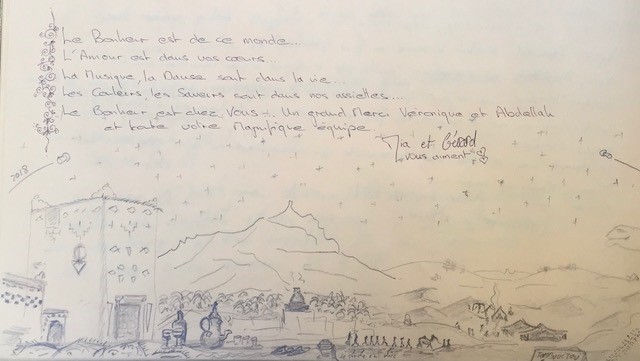 Le Bonheur est de ce monde...
L'Amour est dans vos cœurs...
La Musique, la Danse sont dans la vie...
Les Couleurs, les Saveurs sont dans vos assiettes...
Le Bonheur est chez Vous... Un grand Merci Véronique et Abdellah
et toute votre Magnifique équipe.
Mia et Gérard
"vous aiment"
2018